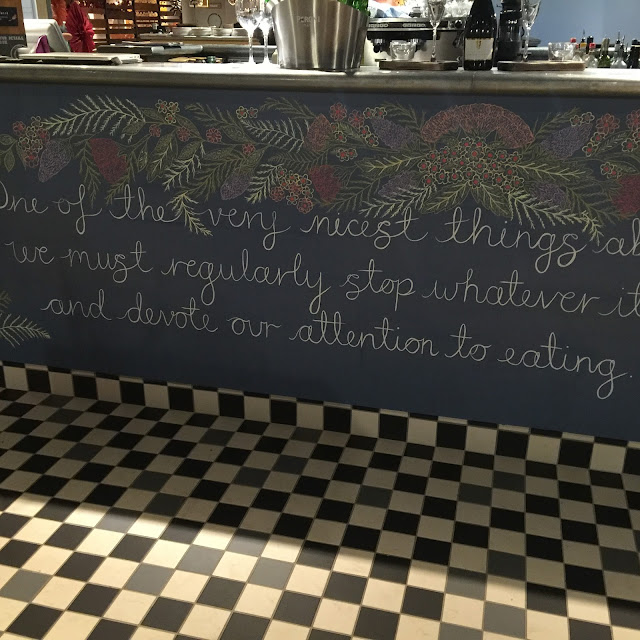 One of the very nicest things ab
we must regularly stop whatever it
and devote our attention to eating.